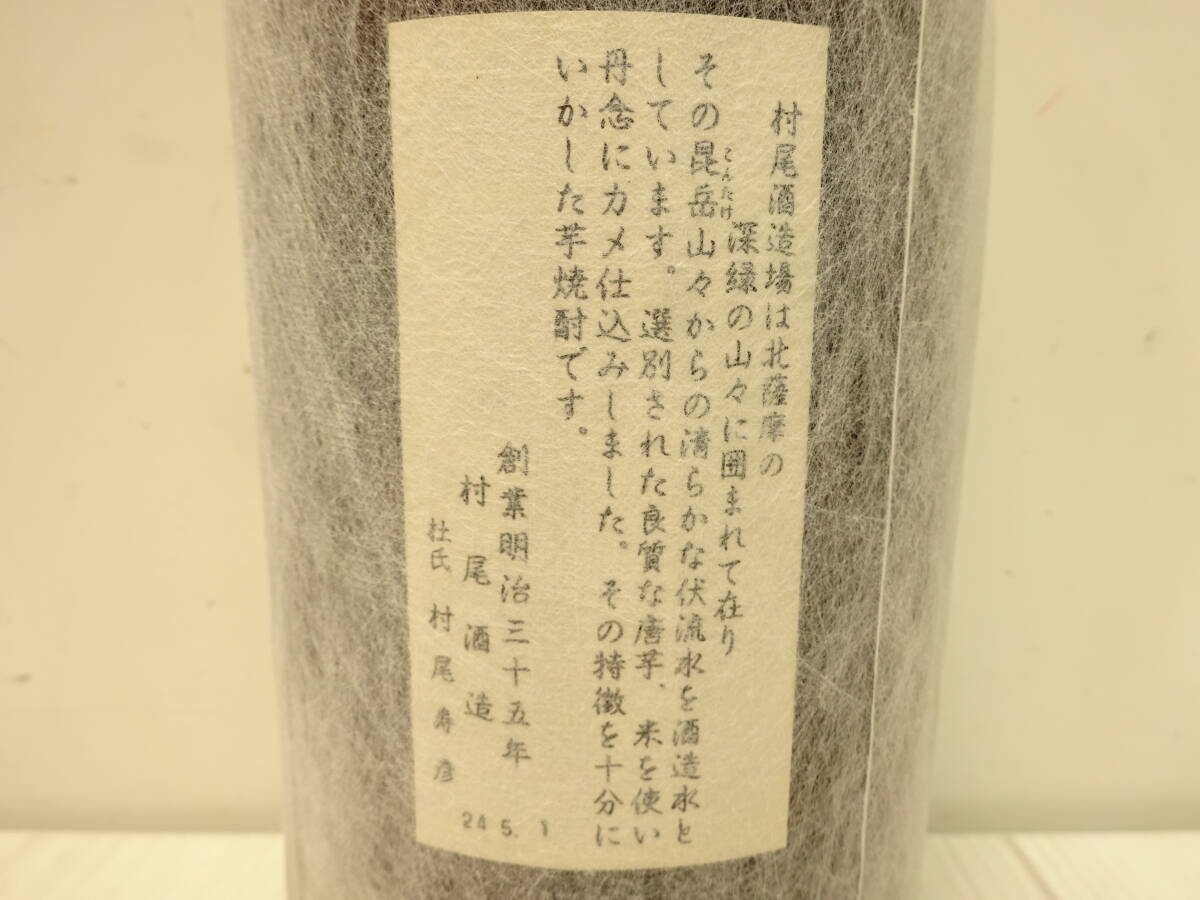 村尾酒造場は北薩摩の
深緑の山々に囲まれて在り
その昆岳山々からの清らかな伏流水を酒造水と
こんたけ
しています。選別された良質な唐芋、米を使い
丹念にカメ仕込みしました。その特徴を十分に
いかした芋焼酎です。
創業明治三十五年
村尾酒造
杜氏 村尾寿彦
24 5. 1